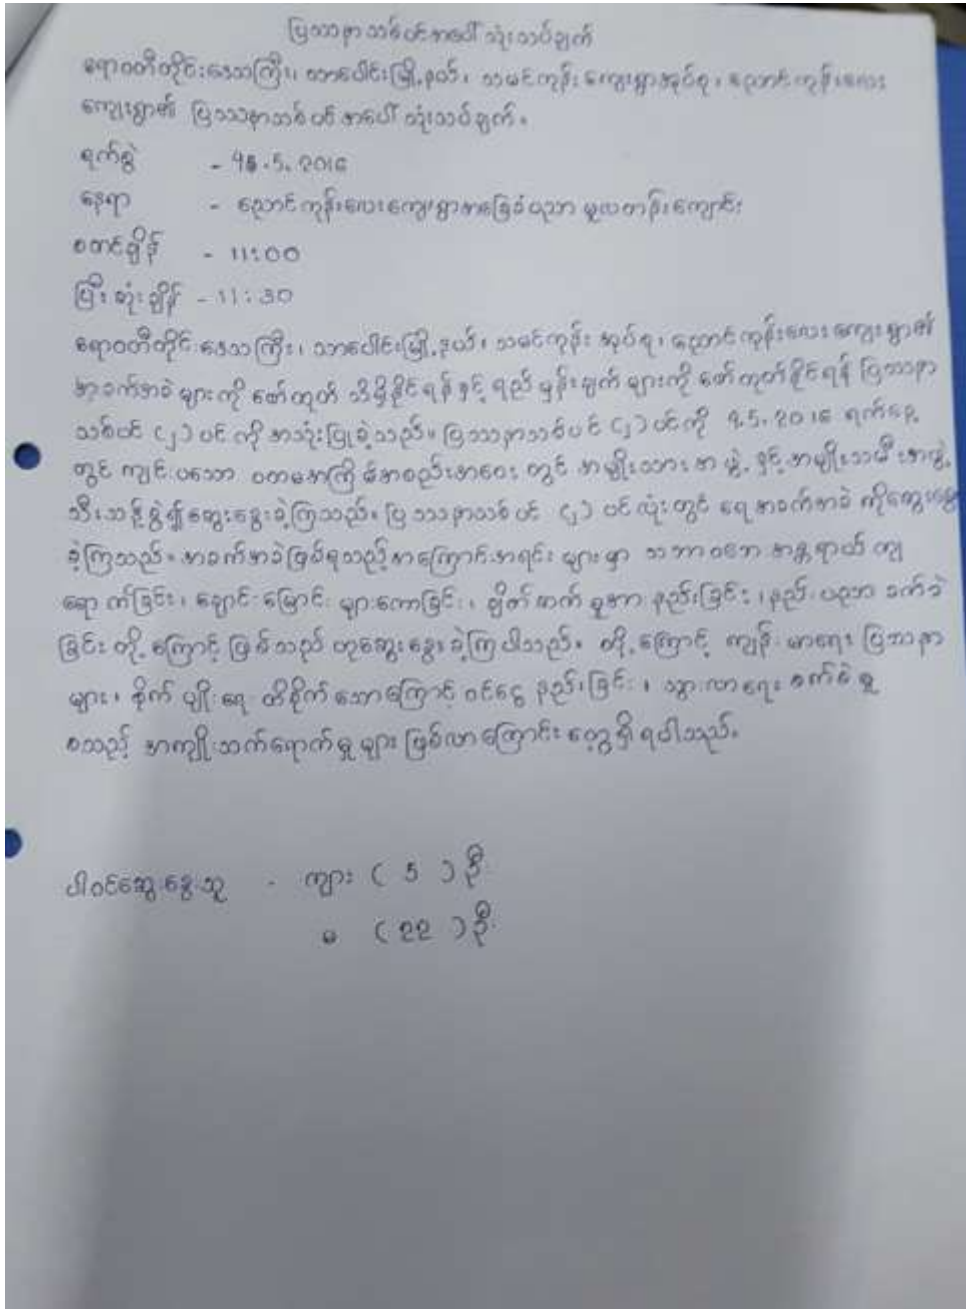 ပြဿနာသစ်ပင်အပေါ် သုံးသပ်ချက်
ဧရာဝတီတိုင်းဒေသကြီး၊ သာပေါင်းမြို့နယ်၊ သမင်ကုန်းကျေးရွာအုပ်စု၊ ညောင်ကုန်းလေး
ကျေးရွာ၏ ပြဿနာသစ်ပင်အပေါ် သုံးသပ်ချက်။
ရက်စွဲ - .5.2018
နေရာ - ညောင်ကုန်းလေးကျေးရွာအခြေခံပညာ မူလတန်းကျောင်း
စတင်ချိန် - 11:00
ပြီးဆုံးချိန် - 11:30
ဧရာဝတီတိုင်းဒေသကြီး၊ သာပေါင်းမြို့နယ်၊ သမင်ကုန်း အုပ်စု၊ ညောင်ကုန်းလေးကျေးရွာ၏
အခက်အခဲများကို ဖော်ထုတ် သိရှိနိုင်ရန်နှင့် ရည်မှန်းချက် များကို ဖော်ထုတ်နိုင်ရန် ပြဿနာ
သစ်ပင် (၂) ပင်ကို အသုံးပြုခဲ့သည်။ ပြဿနာသစ်ပင် (၂) ပင်ကို 9.5.2018 ရက်နေ့
တွင် ကျင်းပသော ပထမအကြိမ်အစည်းအဝေး တွင် အမျိုးသားအဖွဲ့ နှင့် အမျိုးသမီးအဖွဲ့
သီးသန့်ခွဲ၍ဆွေးနွေးခဲ့ကြသည်။ ပြဿနာသစ်ပင် (၂) ပင်လုံးတွင် ရေအခက်အခဲ ကိုဆွေးနွေး
ခဲ့ကြသည်။ အခက်အခဲဖြစ်ရသည့်အကြောင်းအရင်း များမှာ သဘာဝဘေး အန္တရာယ် ကျ
ရောက်ခြင်း၊ ချောင်းမြောင်း များကောခြင်း၊ ချိတ်ဆက် မှုအား နည်းခြင်း၊ နည်းပညာ ခက်ခဲ
ခြင်း တို့ ကြောင့် ဖြစ်သည် ဟုဆွေးနွေးခဲ့ကြပါသည်။ ထို့ကြောင့် ကျန်းမာရေး ပြဿနာ
များ၊ စိုက်ပျိုးရေ ထိခိုက်သောကြောင့် ဝင်ငွေ နည်းခြင်း၊ သွားလာရေး ခက်ခဲမှု
စသည့် အကျိုးသက်ရောက်မှုများ ဖြစ်လာကြောင်း တွေ့ရှိရပါသည်။
ပါဝင်ဆွေးနွေးသူ - ကျား ( 5 ) ဦး
မ ( 22 ) ဦး